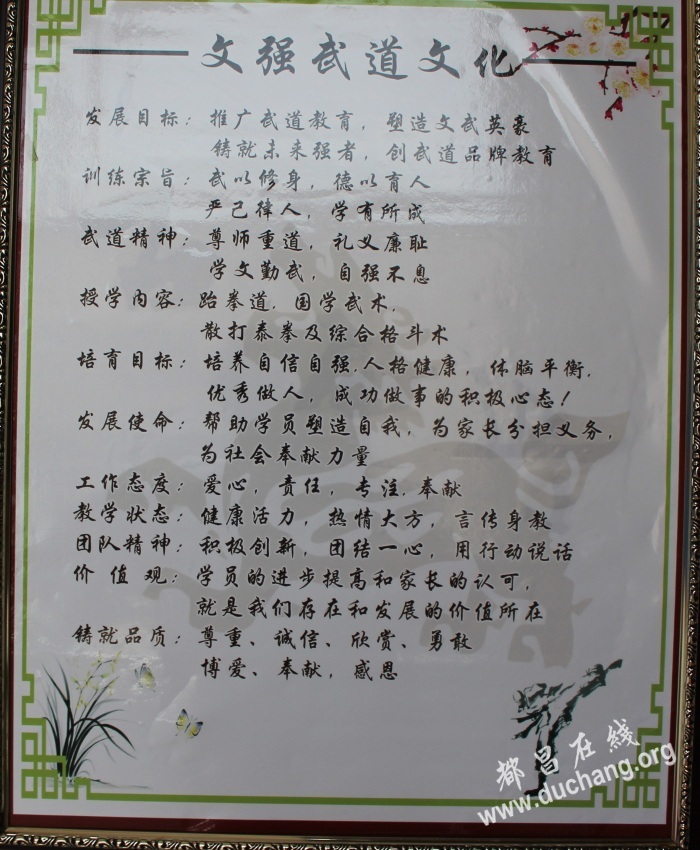 文强武道文化
发展目标：推广武道教育，塑造文武英豪
铸就未来强者，创武道品牌教育
训练宗旨：武以修身，德以育人
严己律人，学有所成
武道精神：尊师重道，礼义廉耻
学文勤武，自强不息
授学内容：跆拳道.国学武术，
散打泰拳及综合格斗术
培育目标：培养自信自强.人格健康，体脑平衡.
优秀做人，成功做事的积极心态！
发展使命：帮助学员塑造自我，为家长分担义务，
为社会奉献力量
工作态度：爱心，责任，专注.奉献
教学状态：健康活力，热情大方，言传身教
团队精神：积极创新，团结一心，用行动说话
价值观：学员的进步提高和家长的认可，
就是我们存在和发展的价值所在
铸就品质：尊重、诚信、欣赏、勇敢
博爱、奉献，感恩
都昌在线
www.duchang.org